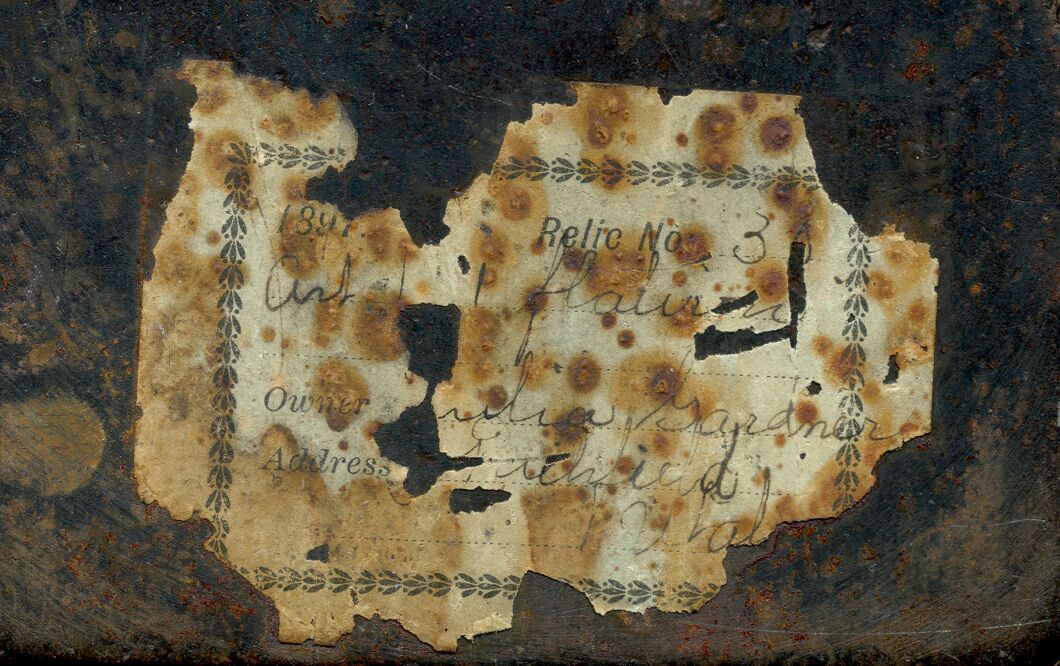 1897. Relic No. 3
Art flatiron
Owner Julia Gardner
Address Richfield
Utah